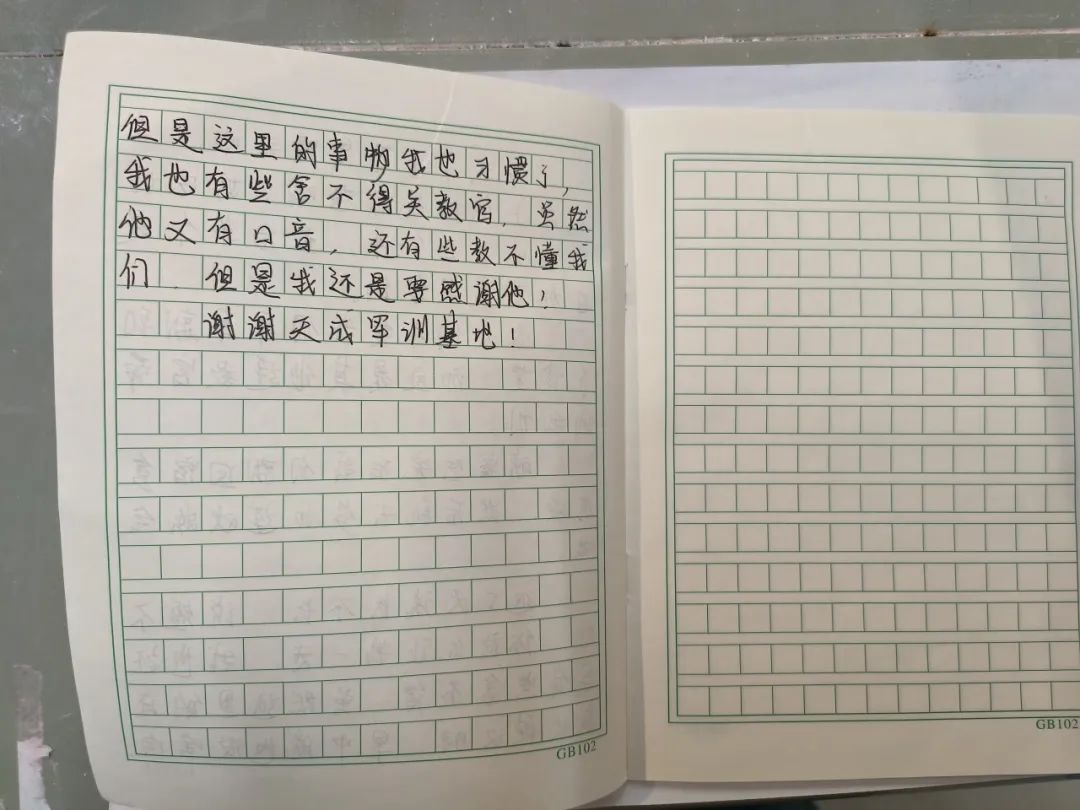 但是这里的事物我也习惯了,
我也有些舍不得吴教官,虽然
他又有口音,还有些教不懂我
们,但是我还是要感谢他!
谢谢天成军训基地!
GB102
GB102